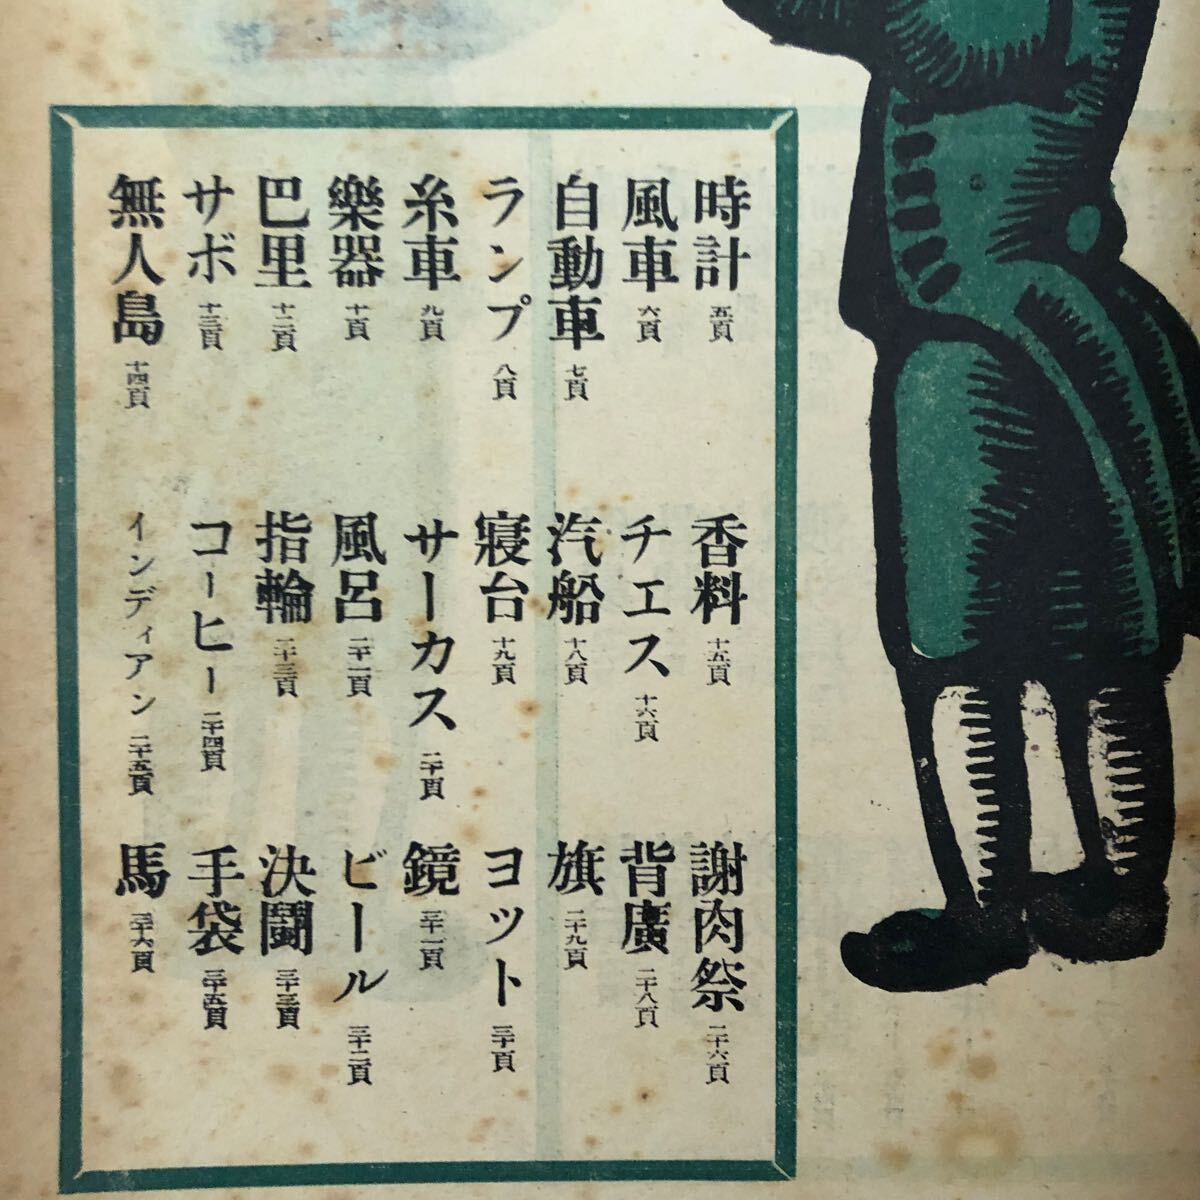 時計 五頁
風車 六頁
自動車 七頁
ランプ 八頁
糸車 九頁
樂器 十頁
巴里 十二頁
サボ 十三頁
無人島 十四頁
香料 十五頁
チエス 十六頁
汽船 十八頁
寢台 十九頁
サーカス 二十頁
風呂 二十一頁
指輪 二十三頁
コーヒー 二十四頁
インディアン 二十五頁
謝肉祭 二十六頁
背廣 二十八頁
旗 二十九頁
ヨット 三十頁
鏡 三十一頁
ビール 三十二頁
決鬪 三十三頁
手袋 三十五頁
馬 三十六頁